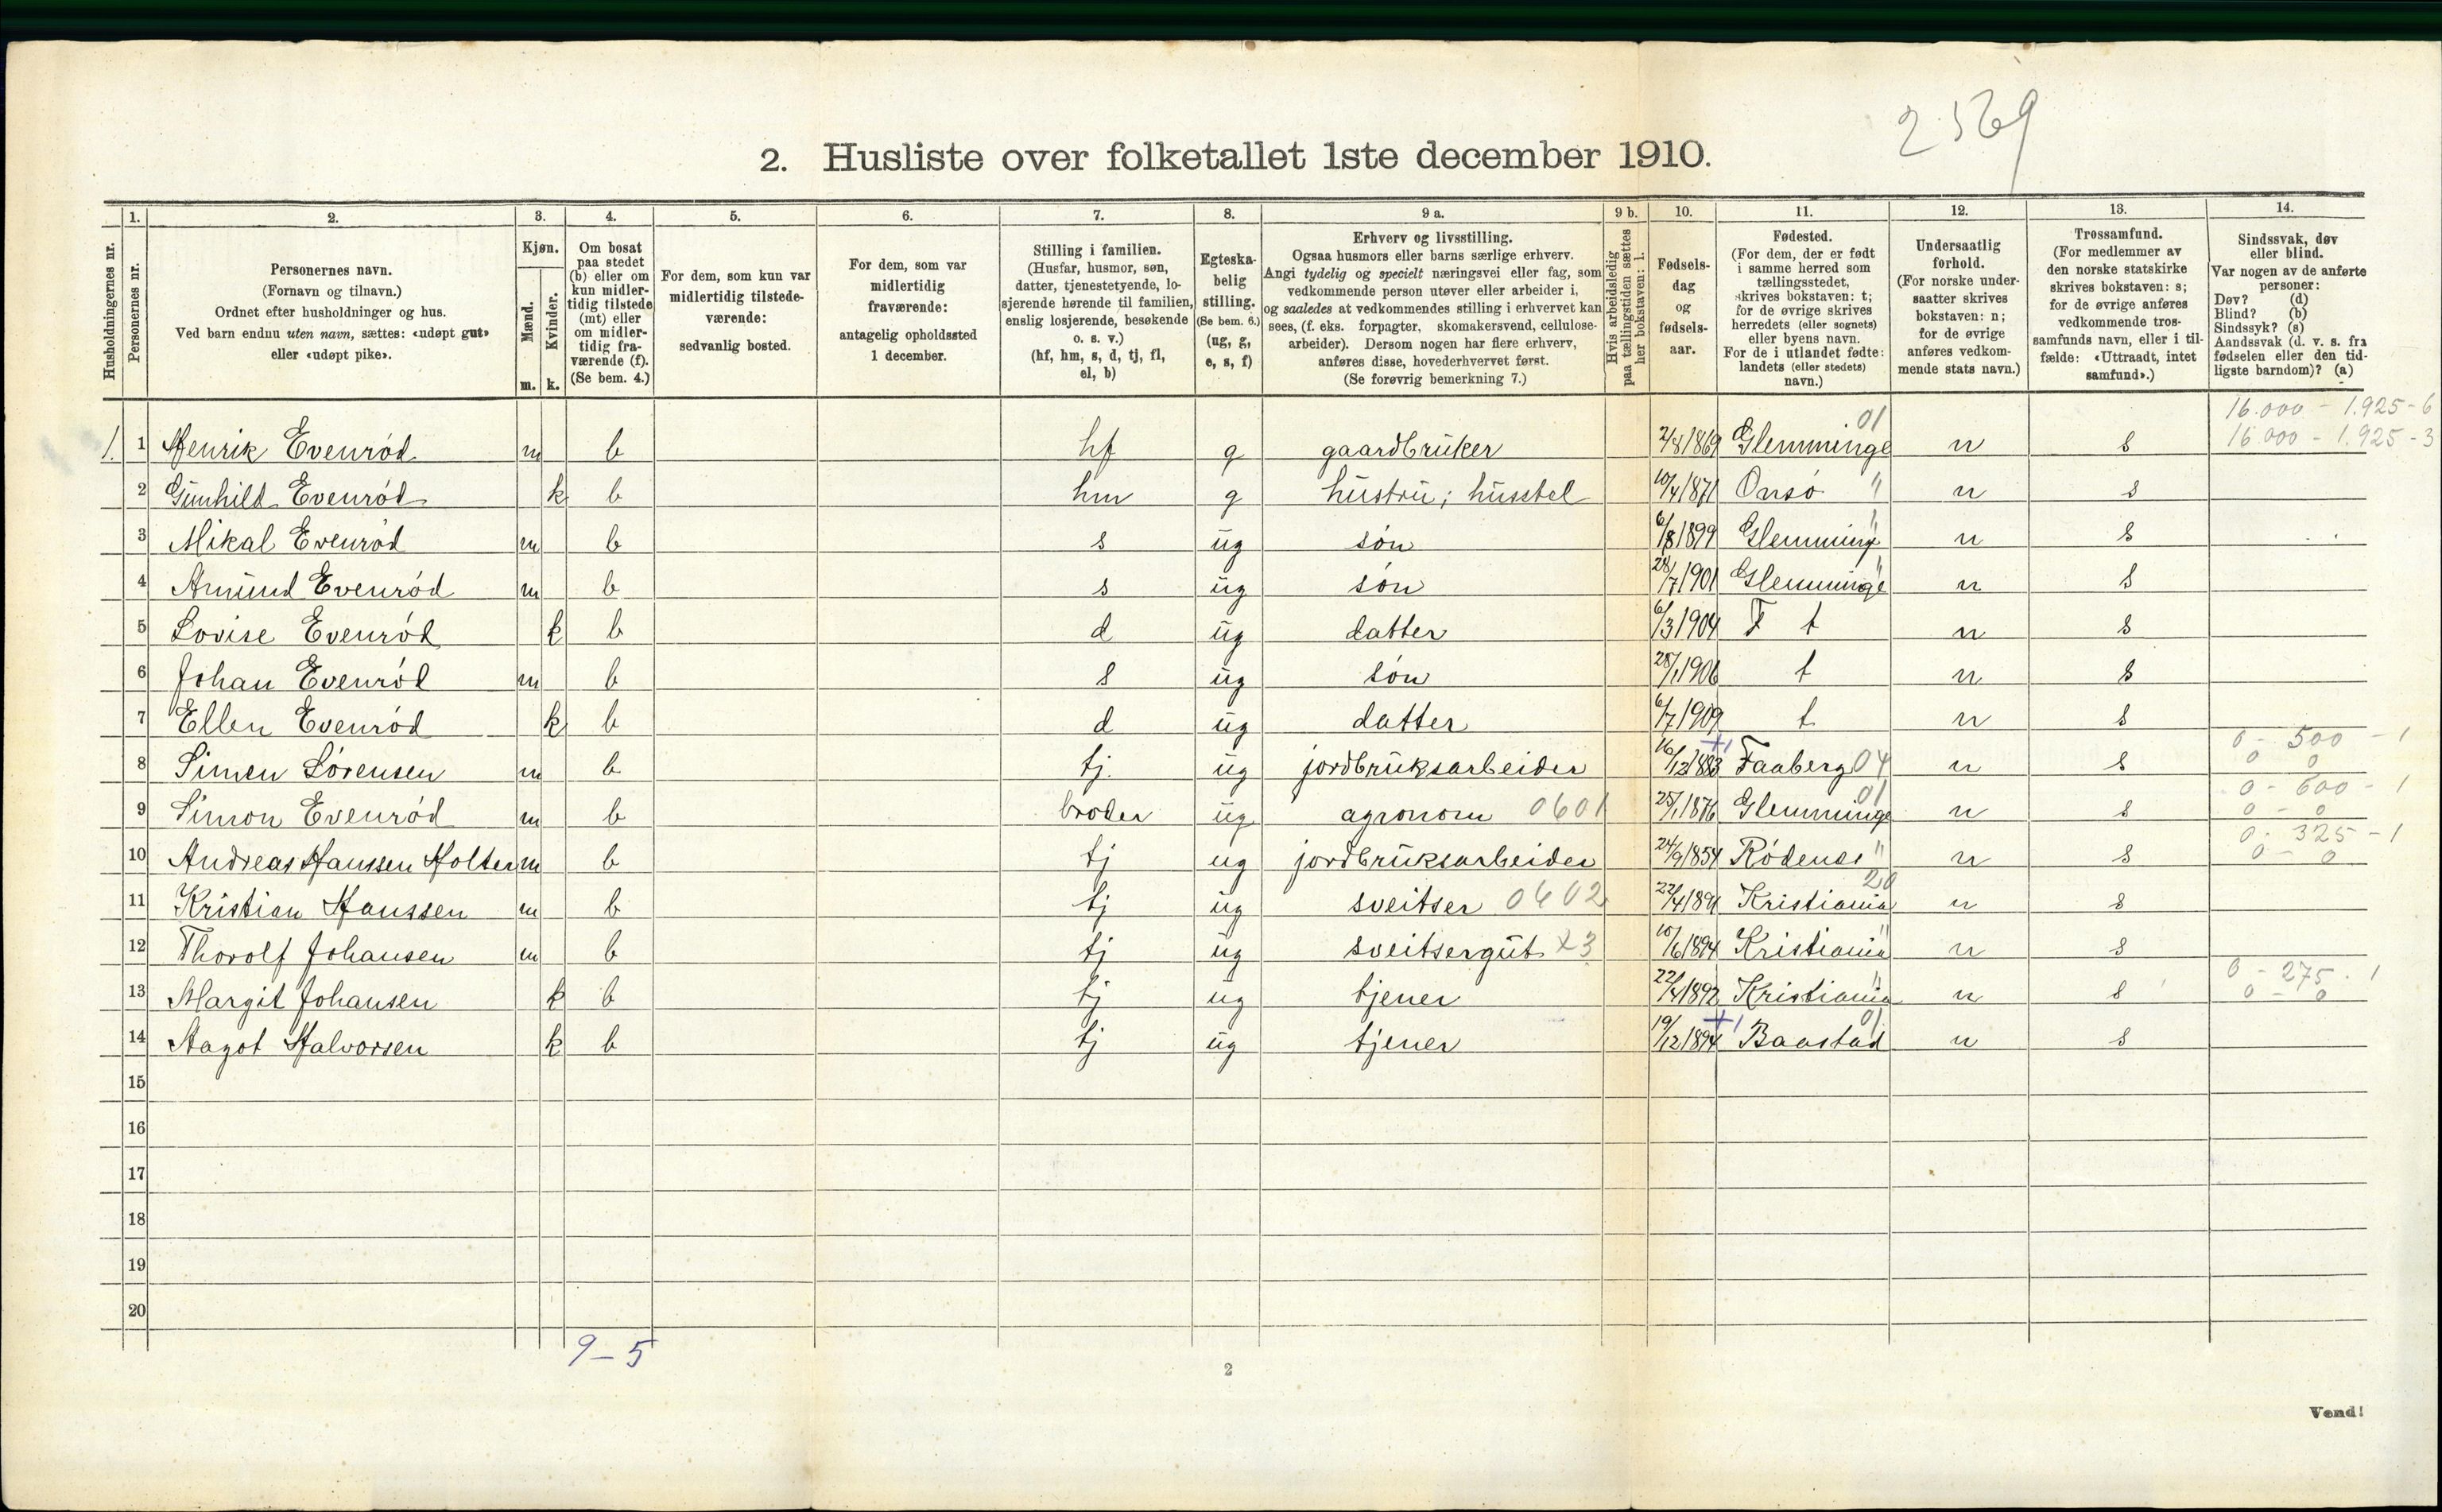 2569
2. Husliste over folketallet 1ste december 1910.
Husholdningernes nr.
1. Personernes nr.
2. Personernes navn. (Fornavn og tilnavn.) Ordnet efter husholdninger og hus. Ved barn endnu uten navn, sættes: «udøpt gut» eller «udøpt pike».
3. Kjøn. Mænd. m. Kvinder. k.
4. Om bosat paa stedet (b) eller om kun midlertidig tilstede (mt) eller om midlertidig fraværende (f). (Se bem. 4.)
5. For dem, som kun var midlertidig tilstedeværende: sedvanlig bosted.
6. For dem, som var midlertidig fraværende: antagelig opholdssted 1 december.
7. Stilling i familien. (Husfar, husmor, søn, datter, tjenestetyende, losjerende hørende til familien, enslig losjerende, besøkende o. s. v.) (hf, hm, s, d, tj, fl, el, b)
8. Egteskabelig stilling. (Se bem. 6.) (ug, g, e, s, f)
9 a. Erhverv og livsstilling. Ogsaa husmors eller barns særlige erhverv. Angi tydelig og specielt næringsvei eller fag, som vedkommende person utøver eller arbeider i, og saaledes at vedkommendes stilling i erhvervet kan sees, (f. eks. forpagter, skomakersvend, cellulosearbeider). Dersom nogen har flere erhverv, anføres disse, hovederhvervet først. (Se forøvrig bemerkning 7.)
9 b. Hvis arbeidsledig paa tællingstiden sættes her bokstaven: l.
10. Fødselsdag og fødselsaar.
11. Fødested. (For dem, der er født i samme herred som tællingsstedet, skrives bokstaven: t; for de øvrige skrives herredets (eller sognets) eller byens navn. For de i utlandet fødte: landets (eller stedets) navn.)
12. Undersaatlig forhold. (For norske undersaatter skrives bokstaven: n; for de øvrige anføres vedkommende stats navn.)
13. Trossamfund. (For medlemmer av den norske statskirke skrives bokstaven: s; for de øvrige anføres vedkommende trossamfunds navn, eller i tilfælde: «Uttraadt, intet samfund».)
14. Sindssvak, døv eller blind. Var nogen av de anførte personer: Døv? (d) Blind? (b) Sindssyk? (s) Aandssvak (d. v. s. fra fødselen eller den tidligste barndom)? (a)
1. 1 Henrik Evenrød m b hf g gaardbruker 2/8 1869 Glemminge 01 n s 16.000 - 1.925 - 6 16.000 - 1.925 - 3
2 Gunhild Evenrød k b hm g hustru; husstel 10/4 1871 Onsø " n s
3 Mikal Evenrød m b s ug søn 6/8 1899 Glemming " n s
4 Amund Evenrød m b s ug søn 28/7 1901 Glemminge " n s
5 Lovise Evenrød k b d ug datter 6/3 1904 t n s
6 Johan Evenrød m b s ug søn 28/1 1906 t n s
7 Ellen Evenrød k b d ug datter 6/7 1909 t n s
8 Simen Sørensen m b tj. ug jordbruksarbeider 16/12 1883 +1 Faaberg 04 n s 0 - 500 - 1 0 0
9 Simon Evenrød m b broder ug agronom 0601 25/1 1876 Glemminge 01 n s 0 - 600 - 1 0 - 0
10 Andreas Hanssen Holter m b tj ug jordbruksarbeider 24/9 1854 Rødenes " n s 0 - 325 - 1 0 - 0
11 Kristian Hanssen m b tj ug sveitser 0602 22/4 1891 Kristiania 20 n s
12 Thorolf Johansen m b tj ug sveitsergut x3 10/6 1894 Kristiania " n s
13 Margit Johansen k b tj ug tjener 22/4 1892 Kristiania " n s 0 - 275 - 1 0 - 0
14 Aagot Halvorsen k b tj ug tjener 19/12 1894 +1 Baastad 01 n s
15
16
17
18
19
20
9 - 5
2
Vend!